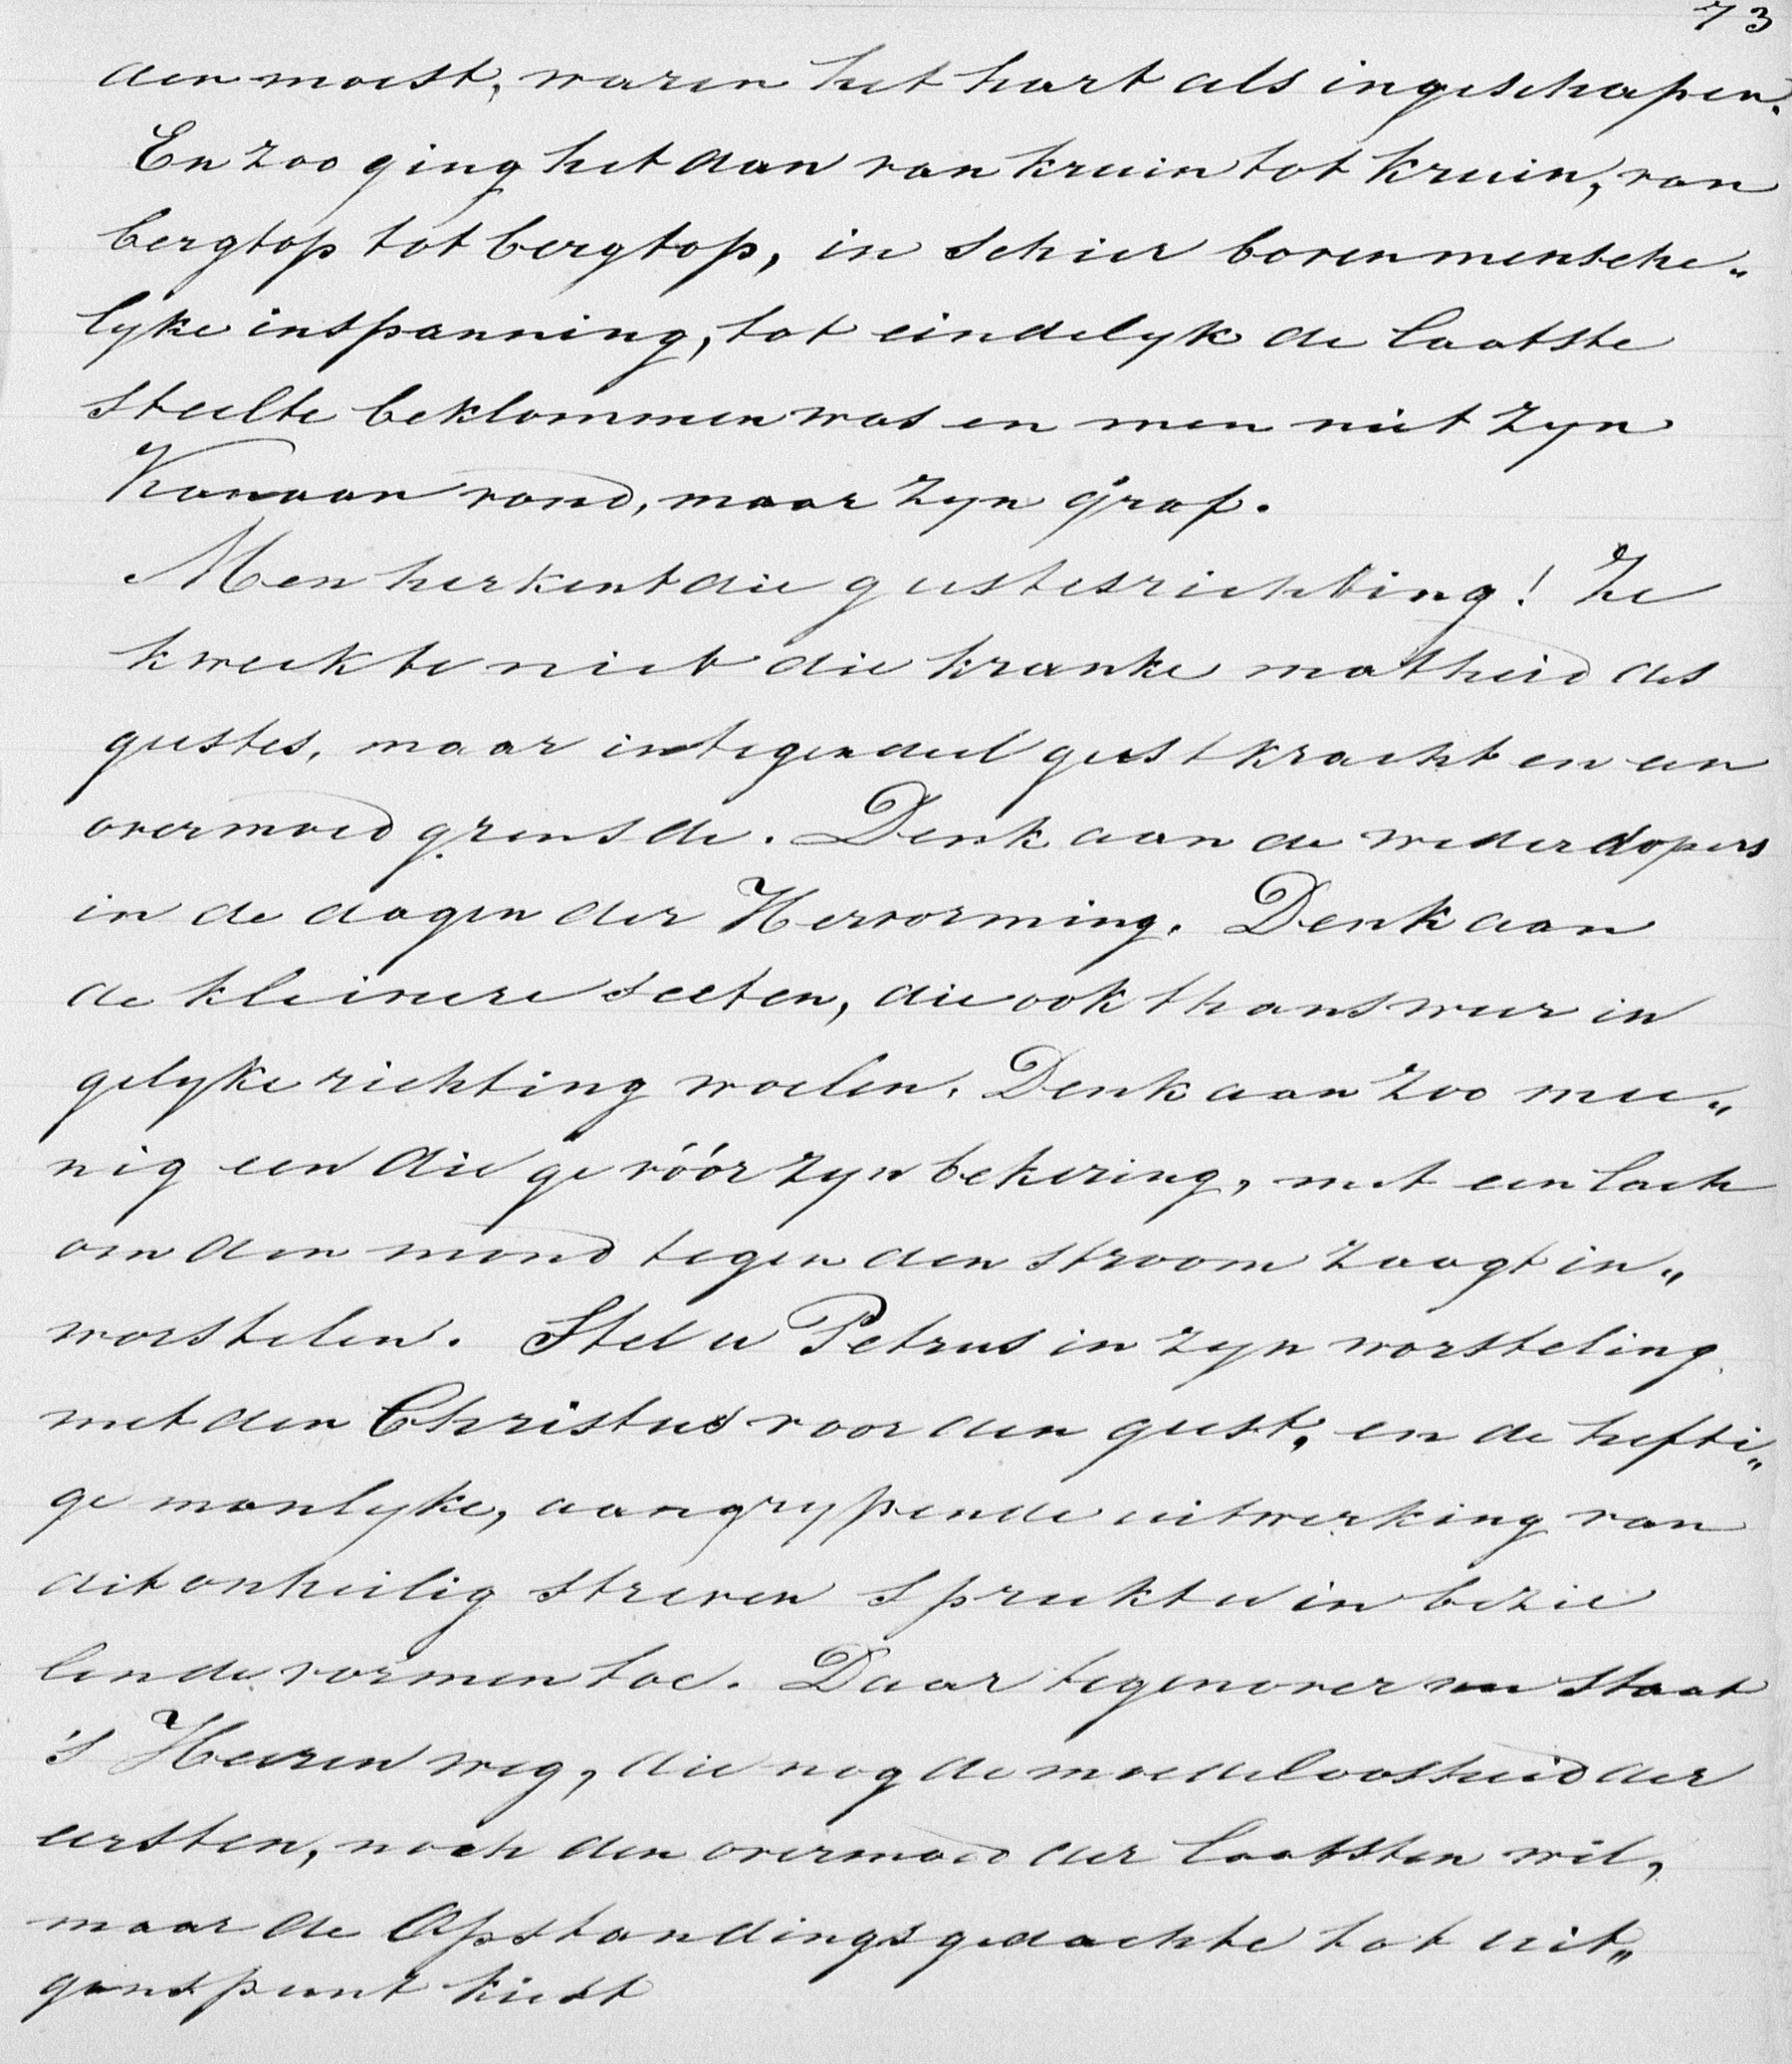 73
den moest, waren het hart als ingeschapen.
En zoo ging het dan van kruin tot kruin, van
bergtop tot bergtop, in schier bovenmensche„
lyke inspanning, tot eindelyk de laatste
steelte beklommen was en men niet zyn
Kanaan vond, maar zyn graf.
Men herkent die geestesrichting! Ze
kweekte niet die kranke matheid des
geestes, maar integendeel geestkracht en aan
overmoed grensde. Denk aan de wederdopers
in de dagen der Hervorming. Denk aan
de kleinere secten, die ook thans weer in
gelyke richting woelen. Denk aan zoo mee„
nig een die ge vóór zyn bekering, met een lach
om den mond tegen den stroom zaagt in„
worstelen. Stel u Petrus in zyn worsteling
met den Christus voor den geest, en de hefti„
ge manlyke, aangrypende uitwerking van
dit onheilig streven spreekt u in bezie
lende vormen toe. Daar tegenover staat
's Heeren weg, die nog de moedeloosheid der
eersten, noch den overmoed der laatsten wil,
maar de Opstandingsgedachte tot uit„
ganspunt kiest